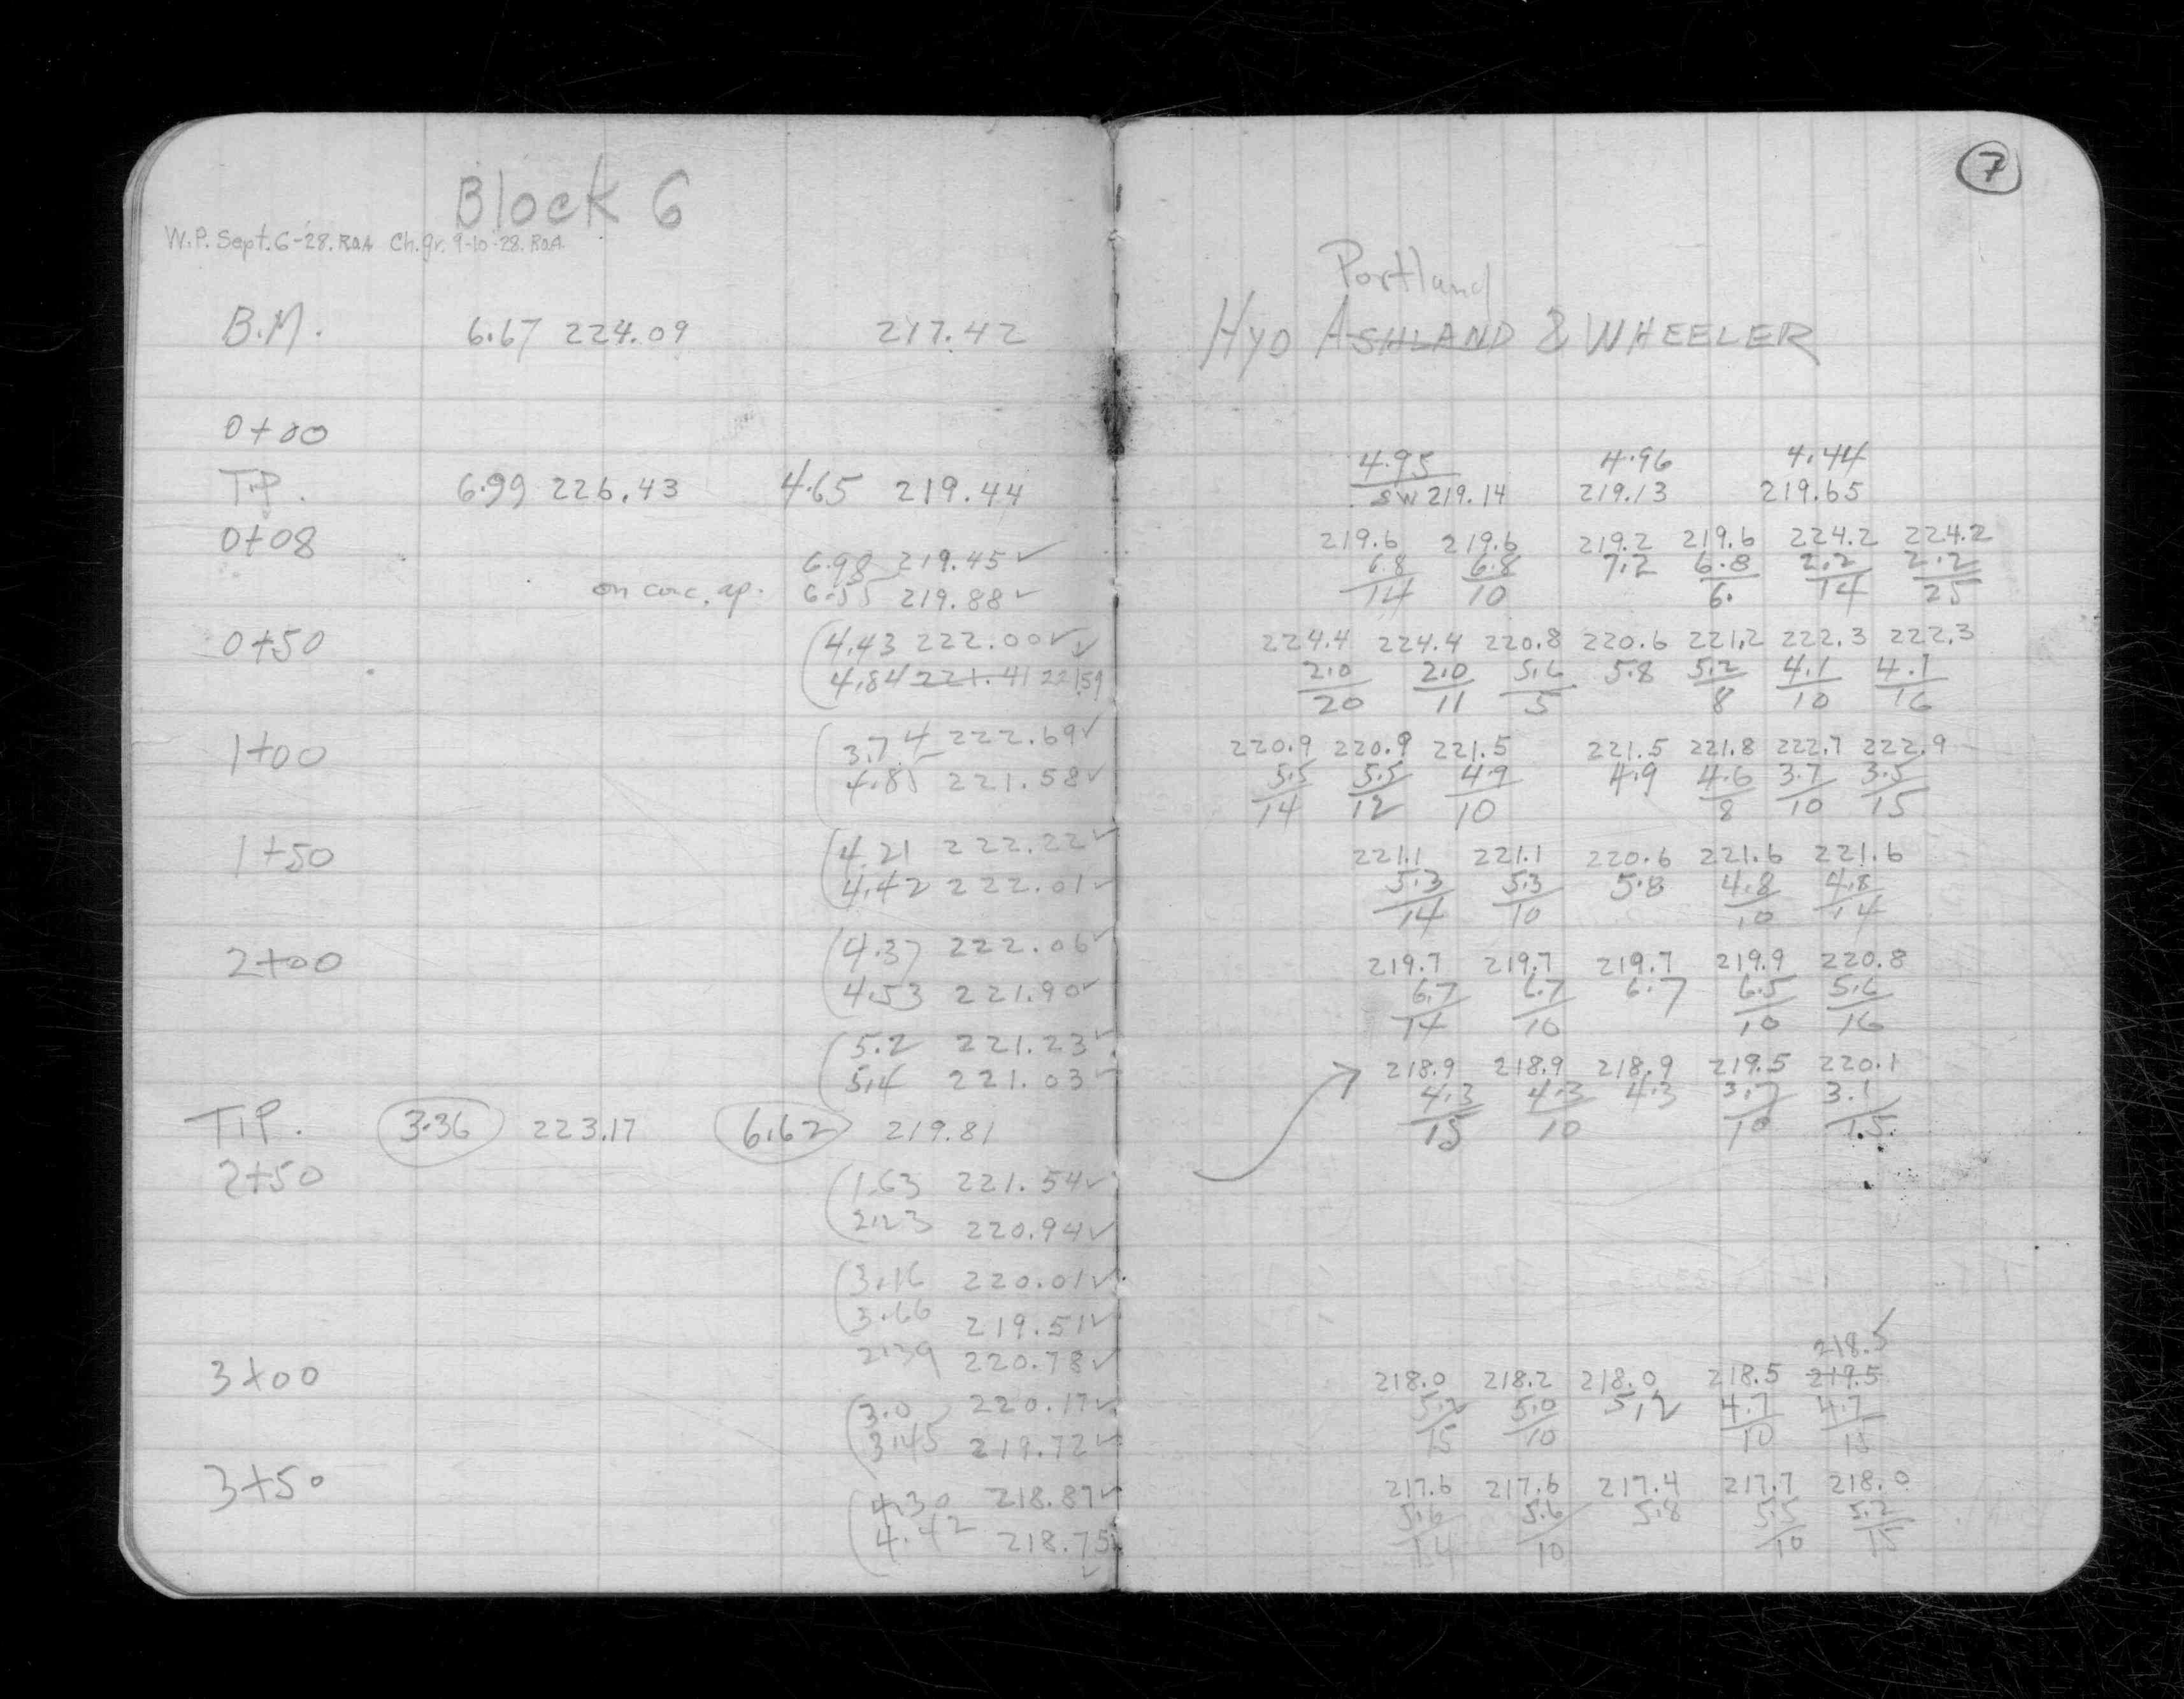 Block 6
W.P. Sept. 6-28. RaA Ch. gr. 9-10-28. RaA.
B.M. 6.67 224.09 217.42
0+00
T.P. 6.99 226.43 4.65 219.44
0+08
6.98 219.45 ✓
on conc. ap. 6.55 219.88 ✓
0+50 (4.43 222.00 ✓✓
4.84 221.41 221.59
1+00 (3.74 222.69 ✓
4.85 221.58 ✓
1+50 (4.21 222.22 ✓
4.42 222.01 ✓
2+00 (4.37 222.06 ✓
4.53 221.90 ✓
(5.2 221.23 ✓
5.4 221.03 ✓
T.P. 3.36 223.17 6.62 219.81
2+50 (1.63 221.54 ✓
2.23 220.94 ✓
(3.16 220.01 ✓
3.66 219.51 ✓
2.39 220.78 ✓
3+00
(3.0 220.17 ✓
3.45 219.72 ✓
3+50 (4.30 218.87 ✓
4.42 218.75 ✓
7
Portland
HYD ASHLAND & WHEELER
4.95 4.96 4.44
SW 219.14 219.13 219.65
219.6 219.6 219.2 219.6 224.2 224.2
6.8 6.8 7.2 6.8 2.2 2.2
14 10 6. 14 25
224.4 224.4 220.8 220.6 221.2 222.3 222.3
2.0 2.0 5.6 5.8 5.2 4.1 4.1
20 11 5 8 10 16
220.9 220.9 221.5 221.5 221.8 222.7 222.9
5.5 5.5 4.9 4.9 4.6 3.7 3.5
14 12 10 8 10 15
221.1 221.1 220.6 221.6 221.6
5.3 5.3 5.8 4.8 4.8
14 10 10 14
219.7 219.7 219.7 219.9 220.8
6.7 6.7 6.7 6.5 5.6
14 10 10 16
218.9 218.9 218.9 219.5 220.1
4.3 4.3 4.3 3.7 3.1
15 10 10 15.
218.5
218.0 218.2 218.0 218.5 219.5
5.2 5.0 5.2 4.7 4.7
15 10 10 15
217.6 217.6 217.4 217.7 218.0
5.6 5.6 5.8 5.5 5.2
14 10 10 15